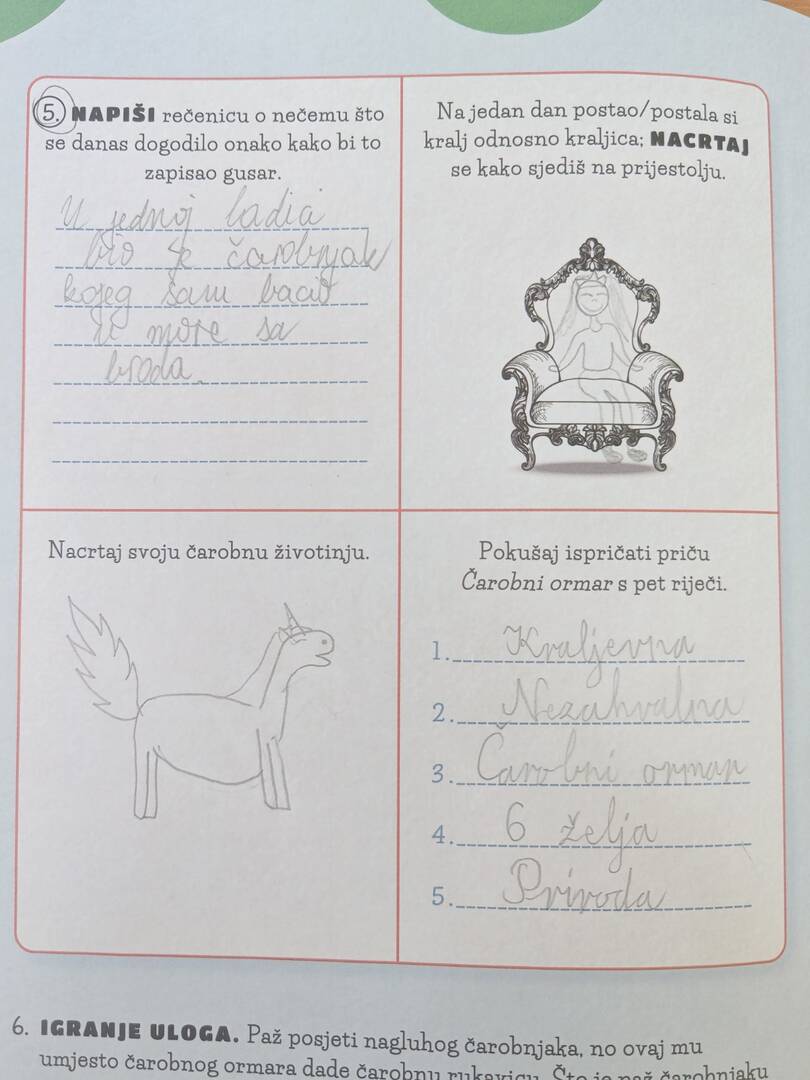 5. NAPIŠI rečenicu o nečemu što
se danas dogodilo onako kako bi to
zapisao gusar.
U jednoj lađia
bio je čarobnjak
kojeg sam bacio
u more sa
broda.
Na jedan dan postao/postala si
kralj odnosno kraljica; NACRTAJ
se kako sjediš na prijestolju.
Nacrtaj svoju čarobnu životinju.
Pokušaj ispričati priču
Čarobni ormar s pet riječi.
1. Kraljevna
2. Nezahvalna
3. Čarobni ormar
4. 6 želja
5. Priroda
6. IGRANJE ULOGA. Paž posjeti nagluhog čarobnjaka, no ovaj mu
umjesto čarobnog ormara dade čarobnu rukavicu. Što je paž čarobnjaku